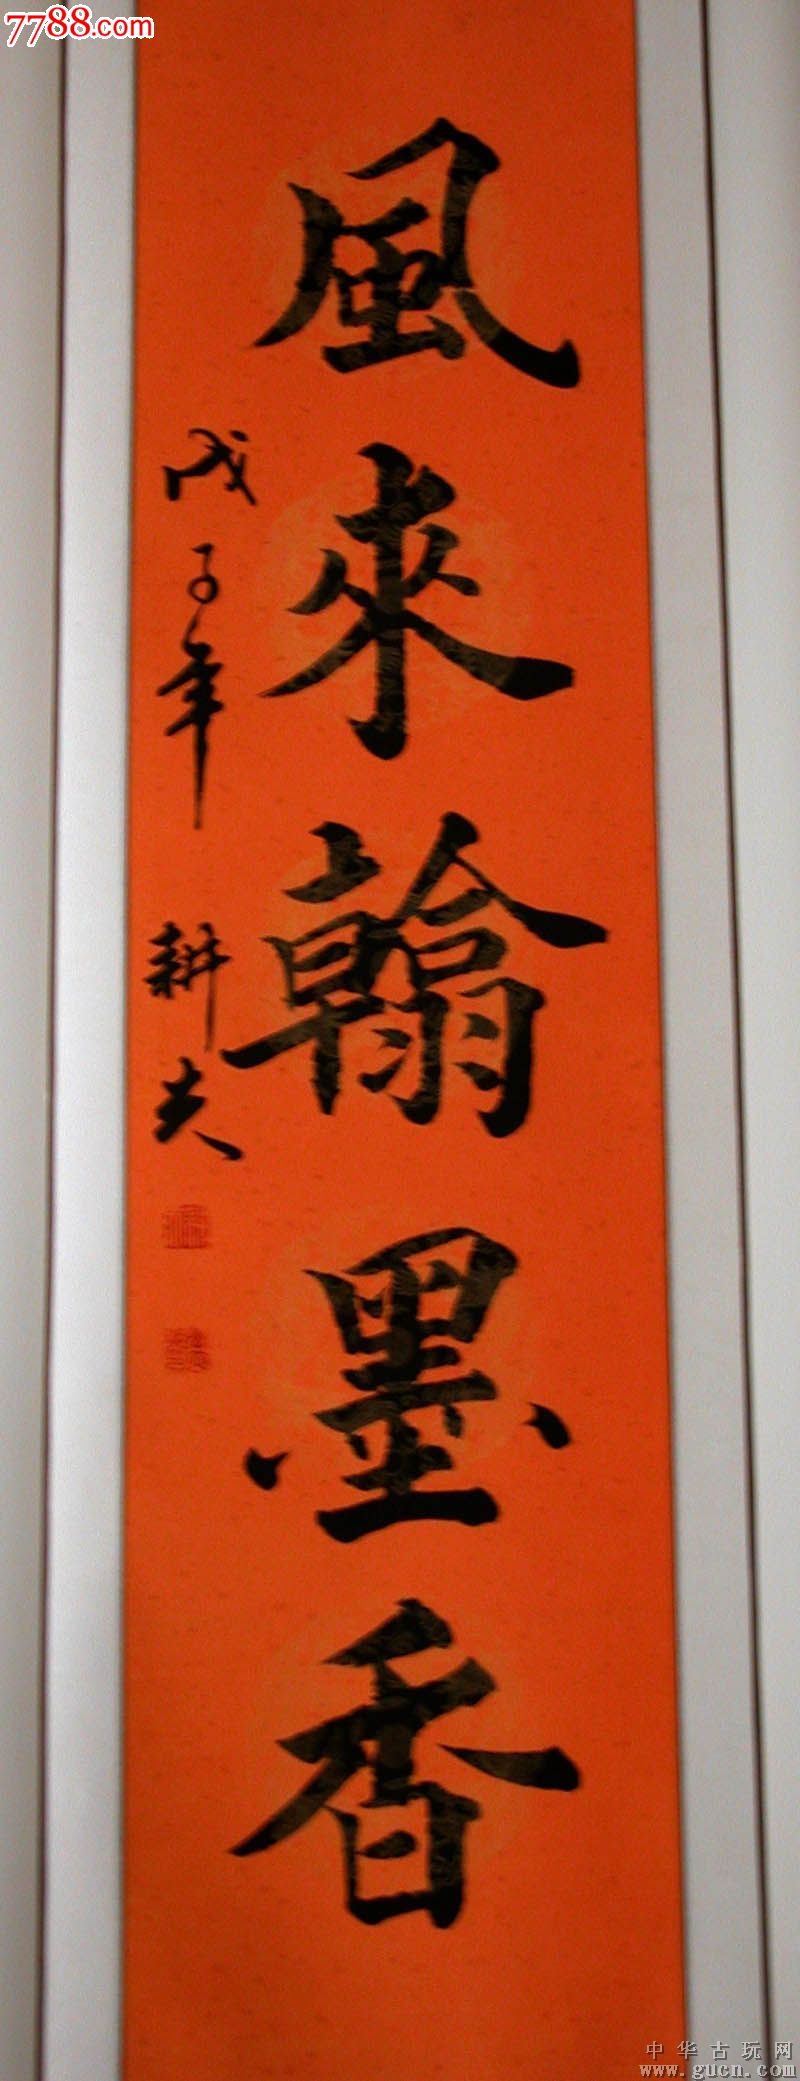 7788.com
風來翰墨香
戊子年 耕夫
中华古玩网
www.gucn.com